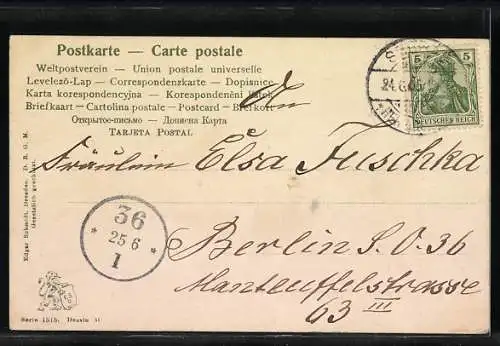 Postkarte — Carte postale
Weltpostverein — Union postale universelle
Levelező-Lap — Correspondenzkarte — Dopisnice
Karta korespondencyjna — Korespondenční lístek
Briefkaart — Cartolina postale — Postcard — Brefkort
Открытое-письмо — Дописна Карта
TARJETA POSTAL
An
5 5
DEUTSCHES REICH
Fräulein Elsa Fuschka
36
25 6
1
Berlin S.O. 36
Manteuffelstrasse
63 III
Edgar Schmidt, Dresden. D. R. G. M.
Gesetzlich geschützt.
Serie 1515. Dessin